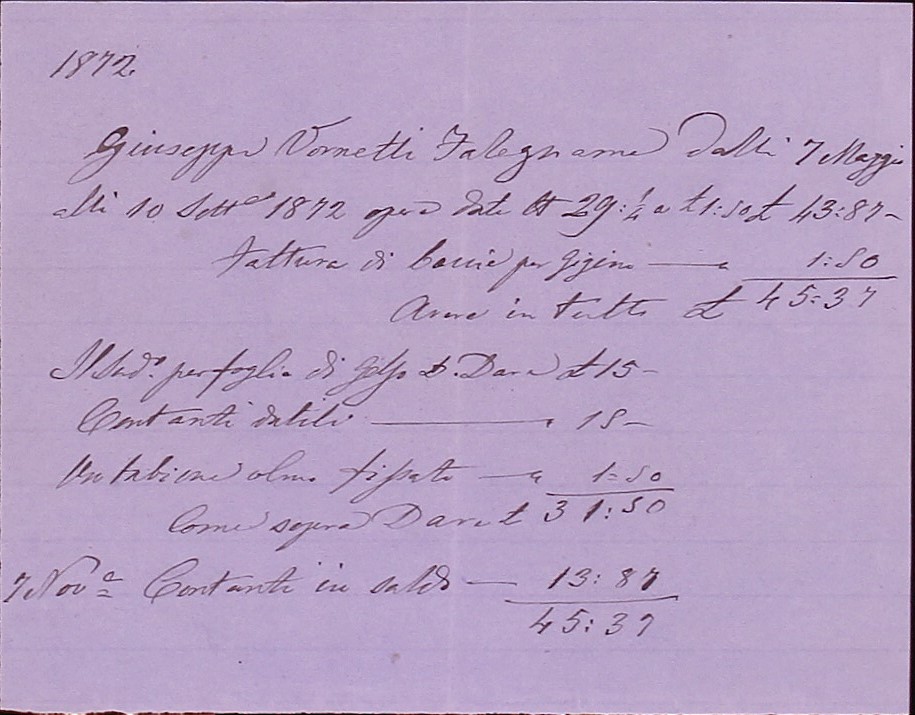 1872.
Giuseppe Vornetti Falegname Dalli 7 Maggio
alli 10 Sett.e 1872 opere date N 29:¼ a £ 1:50 £ 43:87-
Fattura di boccie per Gigino — " 1:50
Avere in tutto £ 45:37
Il Sud.o per foglia di Gelso D. Dare £ 15-
Contanti datili — " 15-
Un tabione olmo fissato — " 1=50
Come sopra Dare £ 31:50
7 Nov.e Contanti in saldo — 13:87
45:37